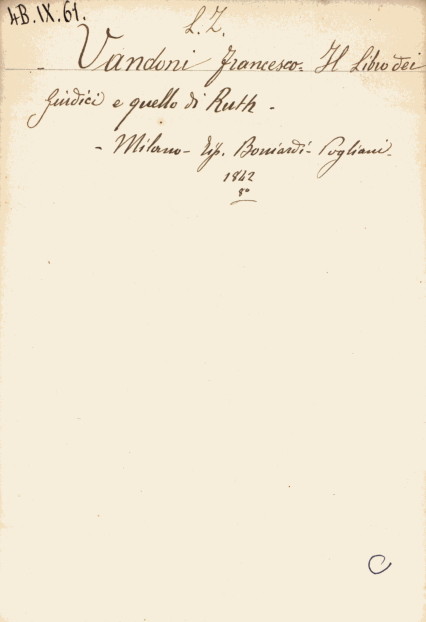 4B.IX.61.
L.Z.
- Vandoni Francesco = Il Libro dei
Giudici e quello di Ruth -
- Milano - Tip. Boniardi - Pogliani -
1842
8°
C